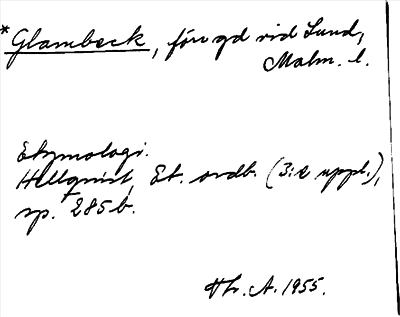 *Glambeck, förr gd vid Lund,
Malm. l.
Etymologi.
Hellquist, Et. ordb. (3:e uppl.),
sp. 285 b.
Th. A. 1955.